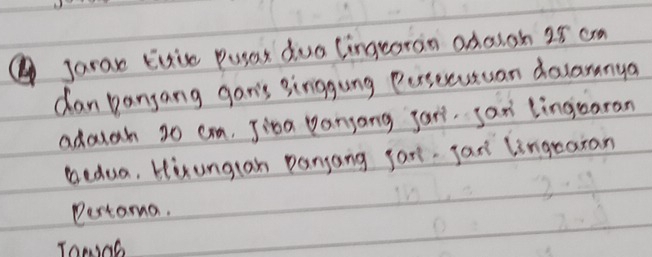 4 Jarak titik pusat dua lingkaran adalah 25 cm
dan panjang garis singgung persekutuan dalamnya
adalah 20 cm. Jika panjang jari-jari lingkaran
kedua. Hitunglah panjang jari-jari lingkaran
pertama.
Jawab